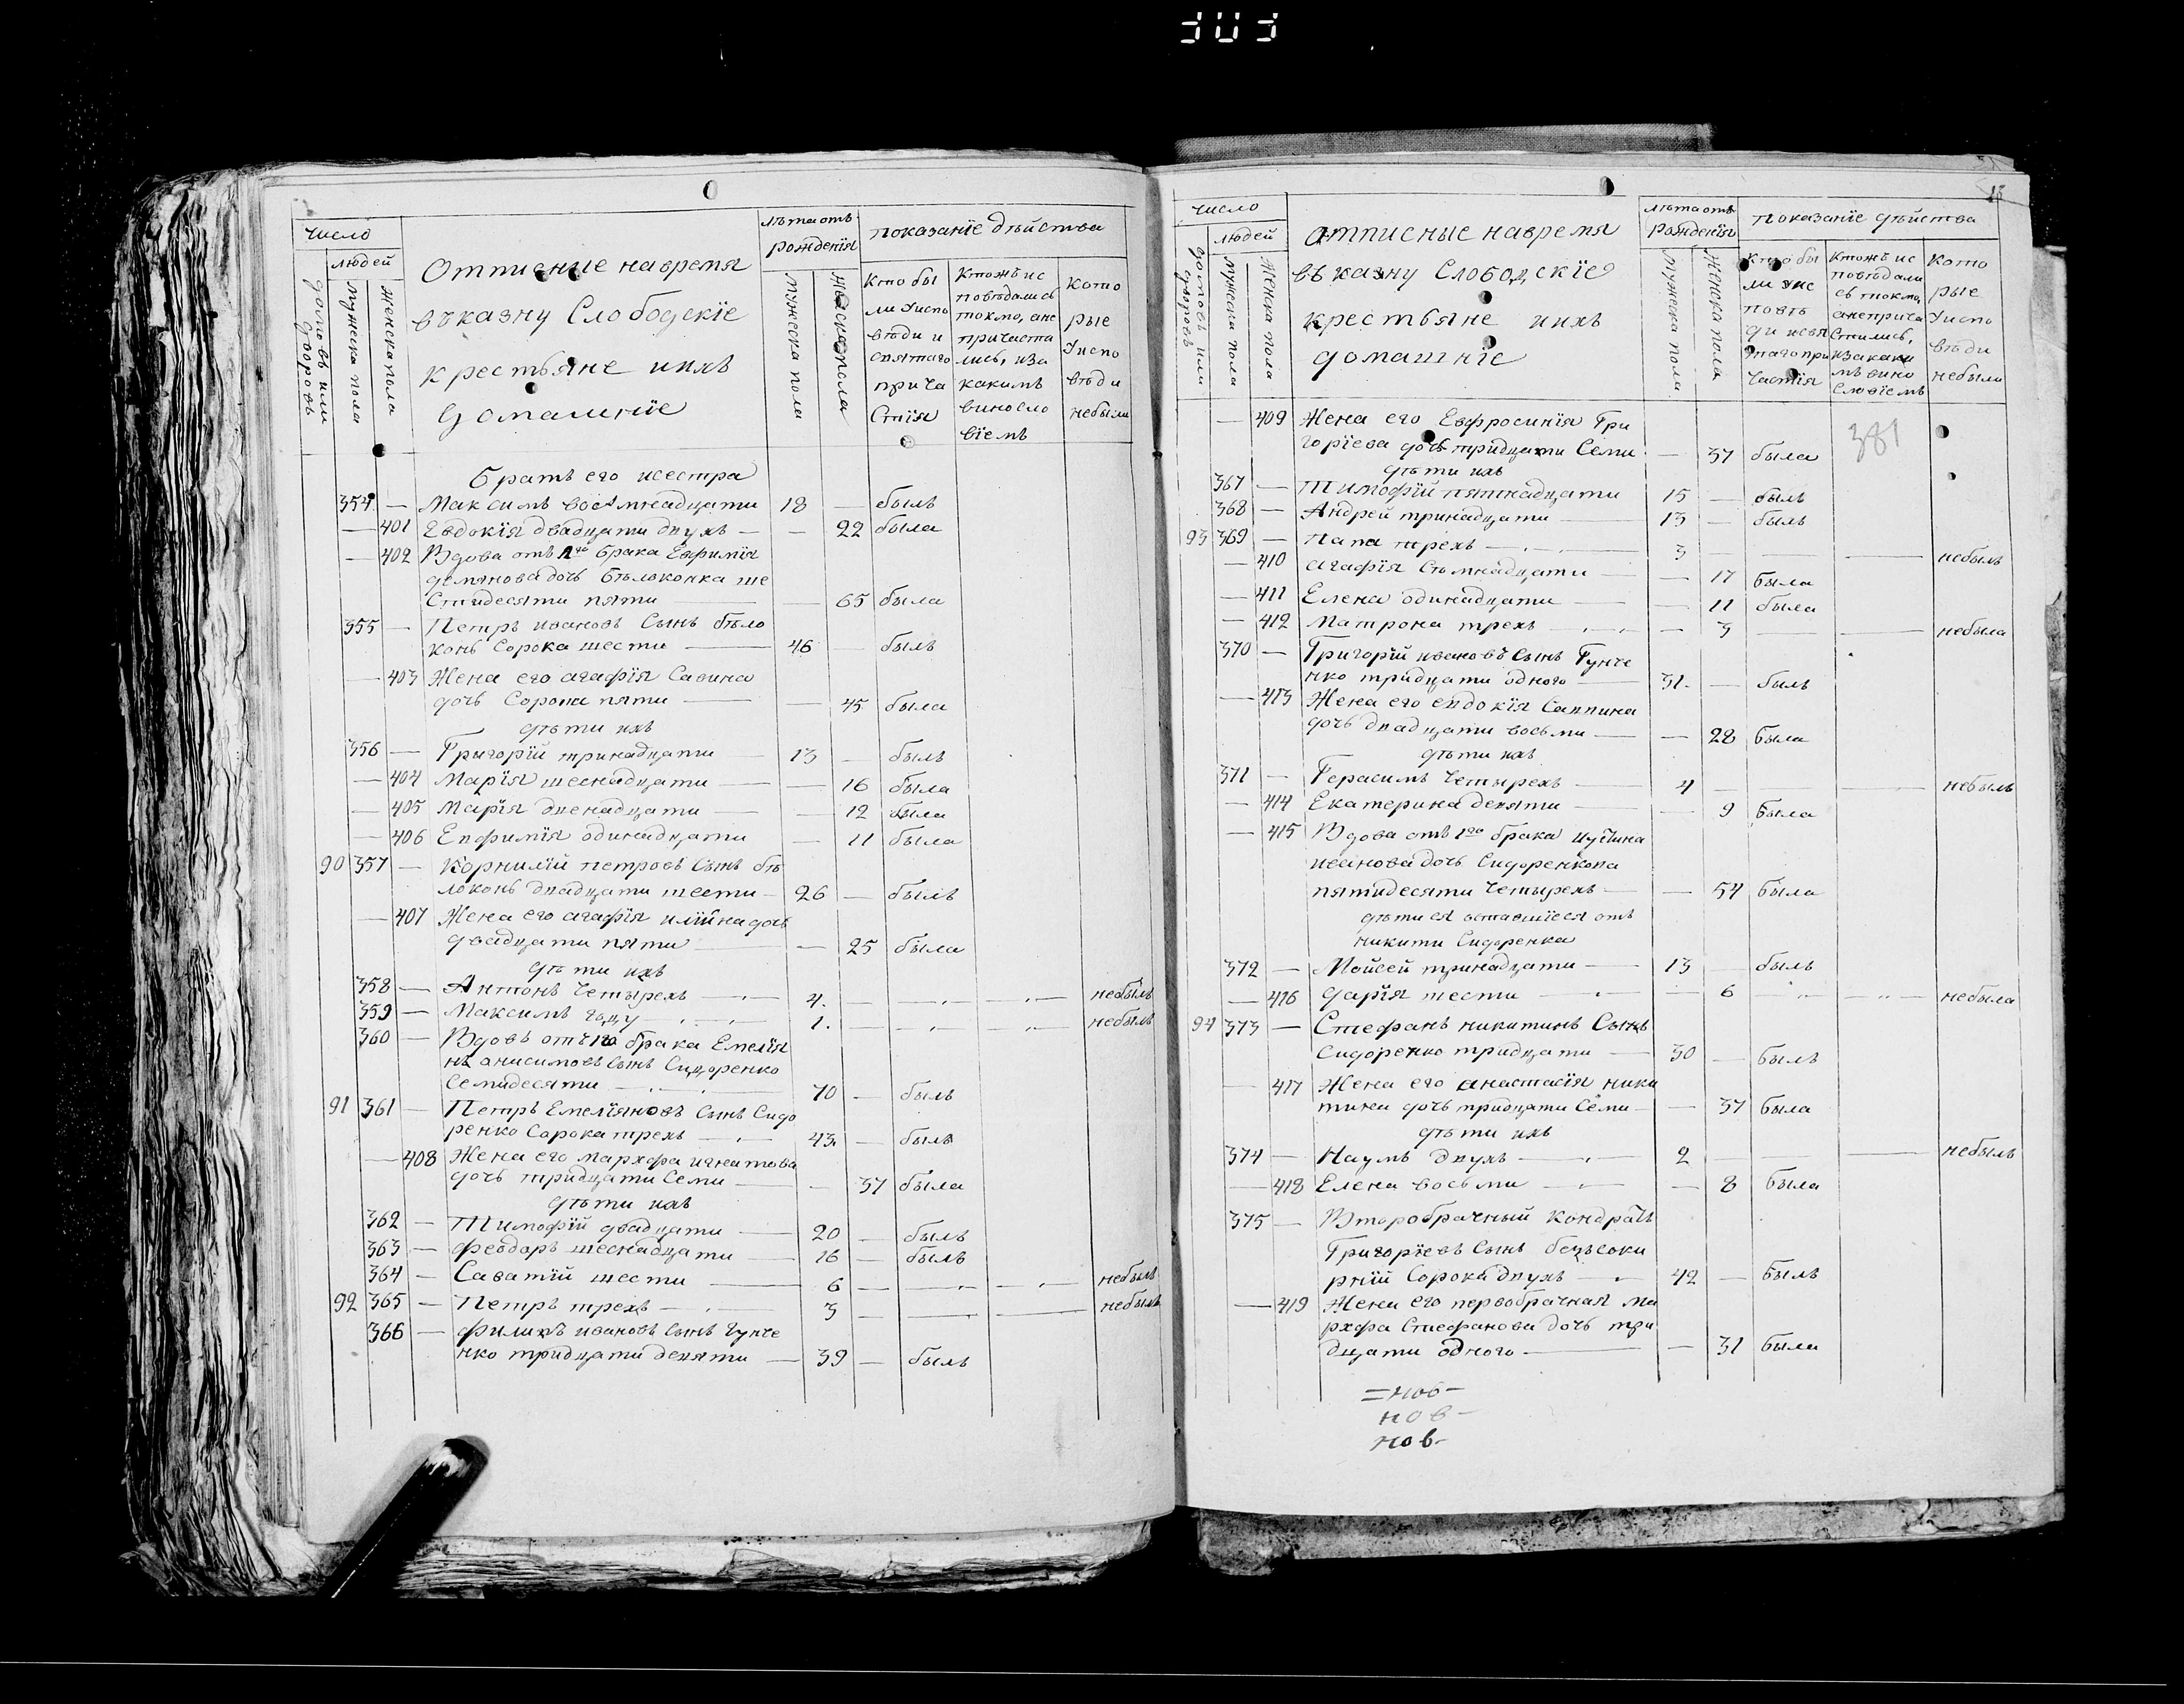 303
число
людей
домовъ или дворовъ
мужеска пола
женска пола
Отписние навремя
въказну Слободскїе
крестьяне ихъ
домашнїе
лѣта отъ
рожденїя
мужеска пола
женска пола
показанїе дѣйства
Кто бы
ли Уиспо
вѣди и
святаго
прича
стїя
Ктожъ ис
повѣдались
токмо, ане
причаста
лись, иза
какимъ
виносло
вїемъ
Кото
рые
Уиспо
вѣди
небыли
братъ его исестра
354 — Максимъ восемнадцати 18 — былъ
— 401 Евдокїя двадцати двухъ — — 22 была
— 402 Вдова отъ 1го брака Евфимїя
демянова дочь бѣлоконка ше
стидесяти пяти — — 65 была
355 — Петръ ивановъ Сынъ бѣло
конь Сорока шести — 46 — былъ
— 403 Жена его агафїя Савина
дочь Сорока пяти — — 45 была
дѣти ихъ
356 — Григорїй тринадцати — 13 — былъ
— 404 Марїя шеснадцати — — 16 была
— 405 Марїя двенадцати — — 12 была
— 406 Евфимїя одинадцати — 11 была
90 357 — Корнилїй петровъ Сынъ бѣ
локонь двадцати шести — 26 — былъ
— 407 Жена его агафїя илїйна дочь
двадцати пяти — — 25 была
дѣти ихъ
358 — Антонъ четырехъ — 4. — — — небылъ
359 — Максимъ году — 1. — — — небылъ
360 — Вдовъ отъ 1го брака Емелїя
нъ анисимовъ Сынъ Сидоренко
Семидесяти — 70 — былъ
91 361 — Петръ Емелїяновъ Сынъ Сидо
ренко Сорока трехъ — 43. — былъ
— 408 Жена его Мархфа игнатова
дочь тридцати Семи — — 37 была
дѣти ихъ
362 — Тимофїй двадцати — 20 — былъ
363 — Феодоръ шеснадцати — 16 — былъ
364 — Саватїй шести — 6 — — — небылъ
92 365 — Петръ трехъ — 3 — — — небылъ
366 — Филипъ ивановъ Сынъ Гунче
нко тридцати девяти — 39 — былъ
15
число
людей
домовъ или дворовъ
мужеска пола
женска пола
Отписные навремя
въ казну Слободскїе
крестьяне ихъ
домашнїе
лѣта отъ
Рожденїя
мужеска пола
женска пола
показанїе дѣйства
Кто бы
ли Уис
повѣ
ди исвя
таго при
частїя
Ктожъ ис
повѣдали
сь токмо,
анеприча
стились,
изаκаки
мъ вино
словїемъ
Кото
рые
Уиспо
вѣди
небыли
381
— 409 Жена его Евфросинїя Гри
горїева дочь тридцати Семи — 37 была
дѣти ихъ
367 — Тимофїй пятнадцати 15 — былъ
368 — Андрей тринадцати — 13 — былъ
93 369 — трехъ — 3 — — — небылъ
— 410 агафїя Семнадцати — — 17 была
— 411 Елена одинадцати — — 11 была
— 412 Матрона трехъ — — 3 — — небыла
370 — Григорїй ивановъ Сынъ Гунче
нко тридцати одного — 31. — былъ
— 413 Жена его евдокїя Саввина
дочь двадцати восьми — — 28 была
дѣти ихъ
371 — Герасимъ Четырехъ — 4 — — — небылъ
— 414 Екатерина девяти — — 9 была
— 415 Вдова отъ 1го брака
иванова дочь Сидоренкова
пятидесяти Четырехъ — — 54 была
дѣти ея оставшїеся отъ
никити Сидоренка
372 — Мойсей тринадцати — 13 — былъ
— 416 дарїя шести — — 6 — — небыла
94 373 — Стефанъ никитинъ Сынъ
Сидоренко тридцати — 30 — былъ
— 417 Жена его анастасїя ники
тина дочь тридцати Семи — — 37 была
дѣти ихъ
374 — Наумъ двухъ — 2 — — — небылъ
— 418 Елена восьми — — 8 была
375 — Второбрачный Кондратъ
Григорїевъ Сынъ
Сорока двухъ — 42 — былъ
— 419 Жена его первобрачная Ма
рхфа Стефанова дочь три
дцати одного — — 31 была
= нов —
нов —
нов —